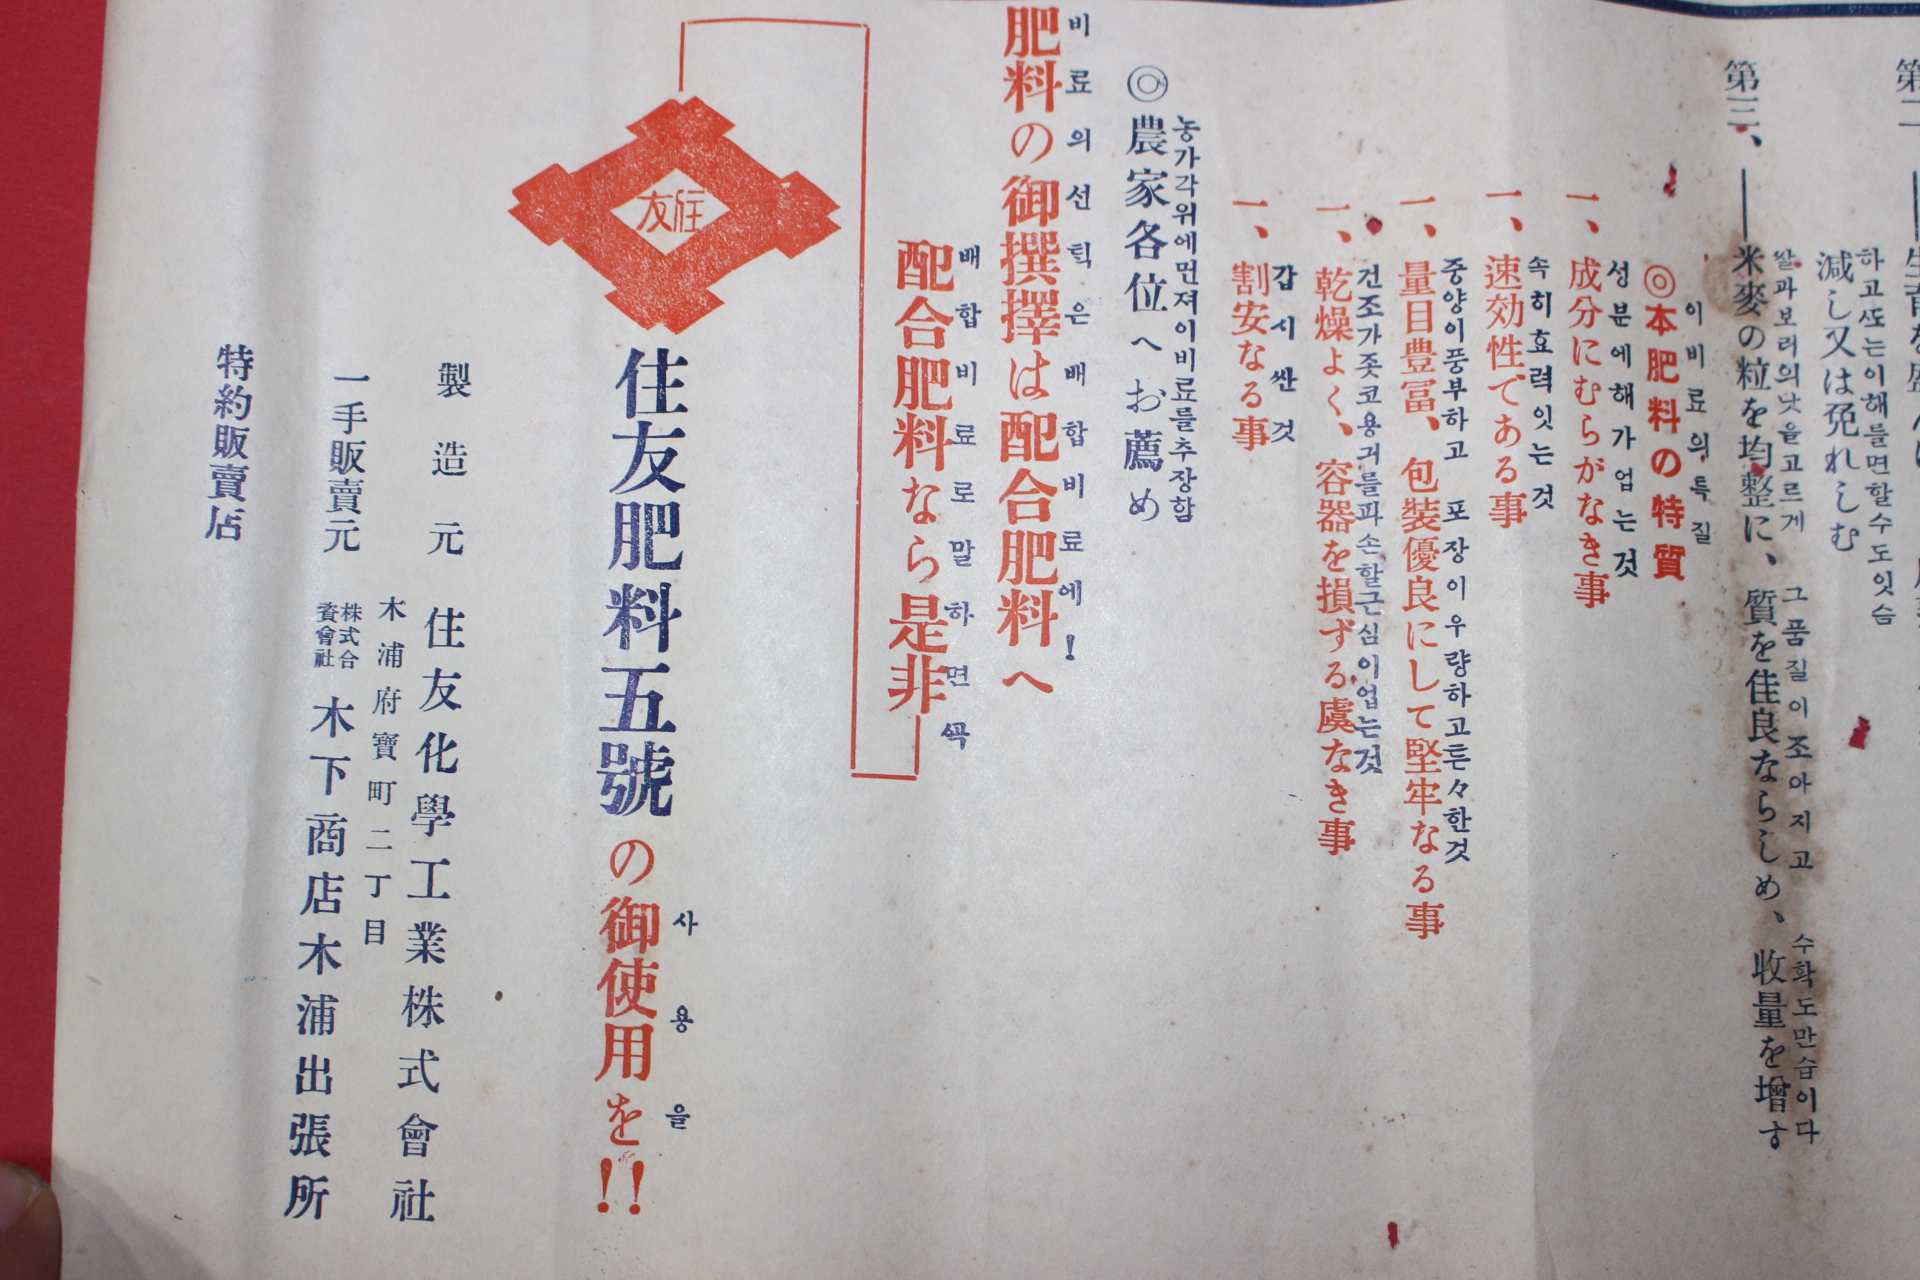 第二、
하고또는이해를면할수도잇슴
減し又は免れしむ
쌀과보리의낫을고르게 그품질이조아지고 수확도만습이다
第三、━━米麥の粒を均整に、質を佳良ならしめ、收量を增す
이비료의특질
◎本肥料の特質
성분에해가업는것
一、成分にむらがなき事
속히효력잇는것
一、速効性である事
중양이풍부하고 포장이우량하고든々한것
一、量目豊富、包裝優良にして堅牢なる事
건조가좃코용긔를파손할근심이업는것
一、乾燥よく、容器を損ずる虞なき事
갑시싼것
一、割安なる事
농가각위에먼져이비료를추장함
◎農家各位へお薦め
비료의선틱은배합비료에!
肥料の御撰擇は配合肥料へ
배합비료로말하면꼭
配合肥料なら是非
住友
住友肥料五號の御使用を!!
사용을
製造元 住友化學工業株式會社
木浦府寶町二丁目
一手販賣元 株式合資會社 木下商店木浦出張所
特約販賣店